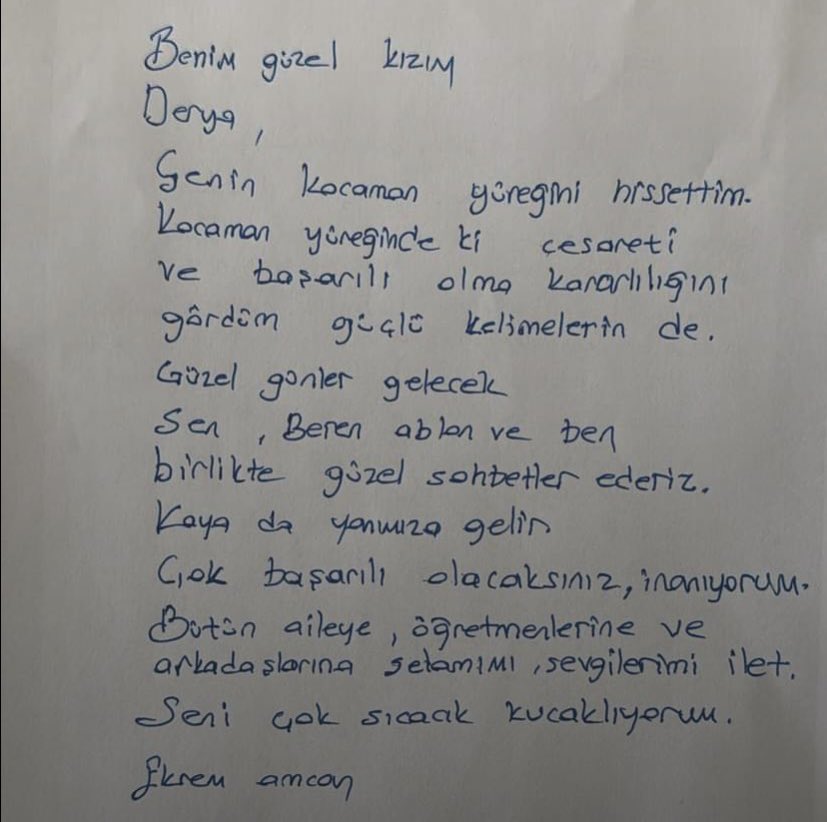 Benim güzel kızım
Derya,
Senin kocaman yüreğini hissettim.
Kocaman yüreğinde ki cesareti
ve başarılı olma kararlılığını
gördüm güçlü kelimelerin de.
Güzel günler gelecek
Sen, Beren ablan ve ben
birlikte güzel sohbetler ederiz.
Kaya da yanımıza gelir
Çok başarılı olacaksınız, inanıyorum.
Bütün aileye, öğretmenlerine ve
arkadaşlarına selamımı, sevgilerimi ilet.
Seni çok sıcacık kucaklıyorum.
Ekrem amcan